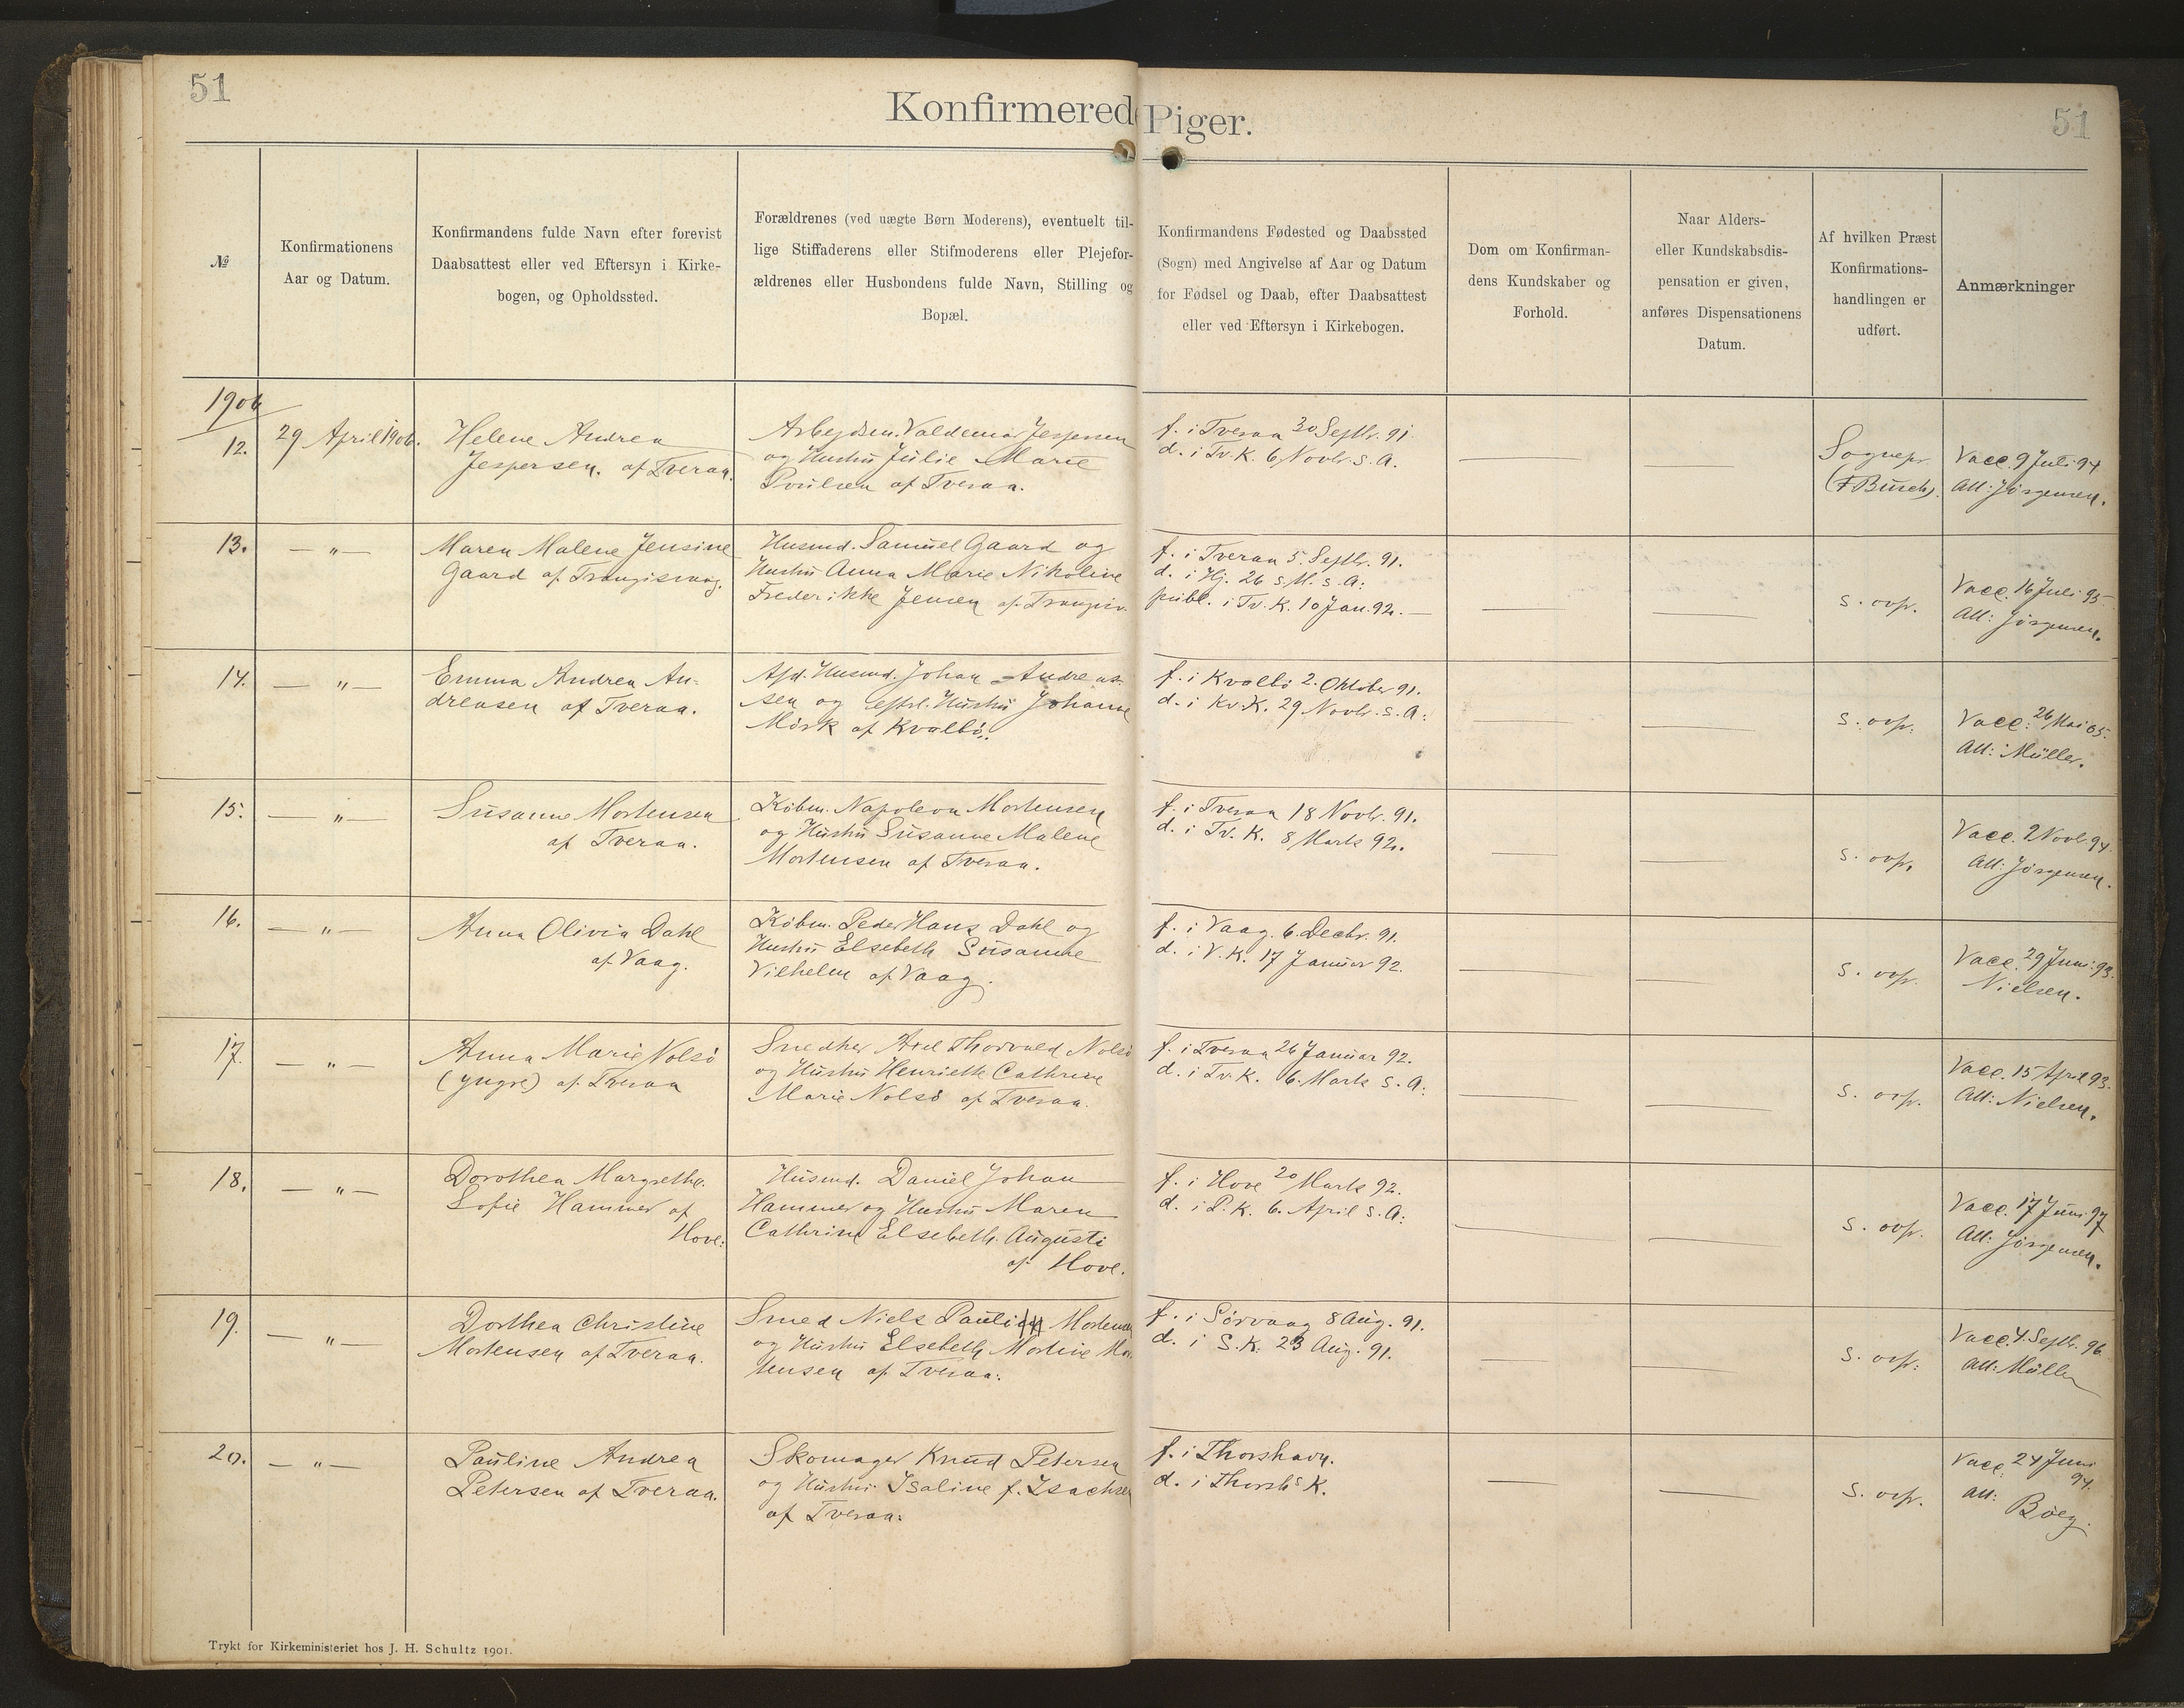 51
51
Konfirmerede Piger.
№
Konfirmationens
Aar og Datum.
Konfirmandens fulde Navn efter forevist
Daabsattest eller ved Eftersyn i Kirke-
bogen, og Opholdssted.
Forældrenes (ved uægte Børn Moderens), eventuelt til-
lige Stiffaderens eller Stifmoderens eller Plejefor-
ældrenes eller Husbondens fulde Navn, Stilling og
Bopæl.
Konfirmandens Fødested og Daabssted
(Sogn) med Angivelse af Aar og Datum
for Fødsel og Daab, efter Daabsattest
eller ved Eftersyn i Kirkebogen.
Dom om Konfirman-
dens Kundskaber og
Forhold.
Naar Alders-
eller Kundskabsdis-
pensation er given,
anføres Dispensationens
Datum.
Af hvilken Præst
Konfirmations-
handlingen er
udført.
Anmærkninger
1906
12.
29 April 1906.
Helene Andrea
Jespersen. af Tveraa.
Arbejdsm. Valdemar Jespersen
og Hustru Julie Marie
Poulsen af Tveraa.
f. i Tveraa 30 Septbr. 91.
d. i Tv. K. 6 Novbr. s. A.
Sognepr.
(F Busch).
Vacc. 9 Juli 94
Att: Jörgensen.
13.
— " —
Maren Malene Jensine
Gaard af Trangisvaag.
Husmd. Samuel Gaard og
Hustru Anna Marie Nikoline
Frederikke Jensen af Trangisv.
f. i Tveraa 5. Septbr. 91.
d. i Hj. 26 s. M. s. A.
publ. i Tv. K. 10 Jan. 92. —
s. ovf.
Vacc. 16 Juli 95
Att: Jörgensen.
14.
— " —
Emma Andrea An-
dreasen af Tveraa.
Afd. Husmd. Johan Andreas-
sen og efterl. Hustru Johanne
Mörk af Kvalbö.
f. i Kvalbö 2. Oktober 91.
d. i Kv. K. 29 Novbr. s. A.
s. ovf.
Vacc: 26 Mai 05.
Att: Müller.
15.
— " —
Susanne Mortensen
af Tveraa.
Köbm. Napoleon Mortensen
og Hustru Susanne Malene
Mortensen af Tveraa.
f. i Tveraa 18 Novbr. 91.
d. i Tv. K. 8 Marts 92.
s. ovf.
Vacc. 2 Novbr. 94.
Att: Jörgensen.
16.
— " —
Anna Olivia Dahl
af Vaag.
Köbm. Peder Hans Dahl og
Hustru Elsebeth Susanne
Vilhelm af Vaag.
f. i Vaag. 6. Decbr. 91.
d. i V. K. 17 Januar 92.
s. ovf.
Vacc. 29 Juni 93.
Nielsen.
17.
— " —
Anna Marie Nolsö
(yngre) af Tveraa
Snedker Axel Thorvald Nolsö
og Hustru Henriette Cathrine
Marie Nolsö af Tveraa.
f. i Tveraa 26 Januar 92.
d. i Tv. K. 6. Marts s. A.
s. ovf.
Vacc. 15 April 93.
Att: Nielsen.
18.
— " —
Dorothea Margrethe
Sofie Hammer af
Hove.
Husmd. Daniel Johan
Hammer og Hustru Maren
Cathrine Elsebeth Augusti
af Hove.
f. i Hove 20 Marts 92.
d. i P. K. 6. April s. A.
s. ovf.
Vacc. 17 Juni 97
Att: Jörgensen.
19.
— " —
Dorthea Christine
Mortensen af Tveraa.
Smed Niels Pauli Mortensen
og Hustru Elsebeth Mortine Mor-
tensen af Tveraa.
f. i Sörvaag 8 Aug. 91.
d. i S. K. 23 Aug. 91.
s. ovf.
Vacc. 4. Septbr. 96
Att: Müller
20.
— " —
Pauline Andrea
Petersen af Tveraa.
Skomager Knud Petersen
og Hustru Isaline f. Isachsen
af Tveraa.
f. i Thorshavn.
d. i Thorsh's K.
s. ovf.
Vacc. 24 Juni
94.
Att:
Böeg.
Trykt for Kirkeministeriet hos J. H. Schultz 1901.